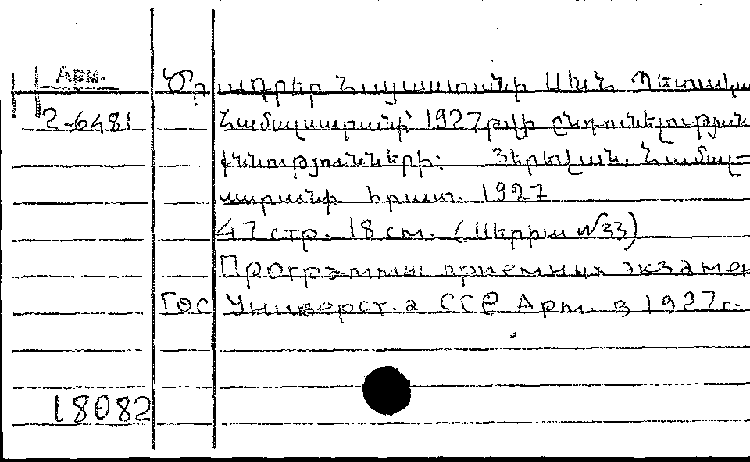 Арм.
Ծրագրեր Հայաստանի Սխհ. Պետական
2-6481 Համալսարանի 1927 թվի ընդունելության
քննությունների: Յերևան. Համալ=
սարանի հրատ. 1927
47 стр. 18 см. (Սերիա №33)
Программы приемных экзамен
Гос Универст.а ССР Арм. в 1927г.
18082